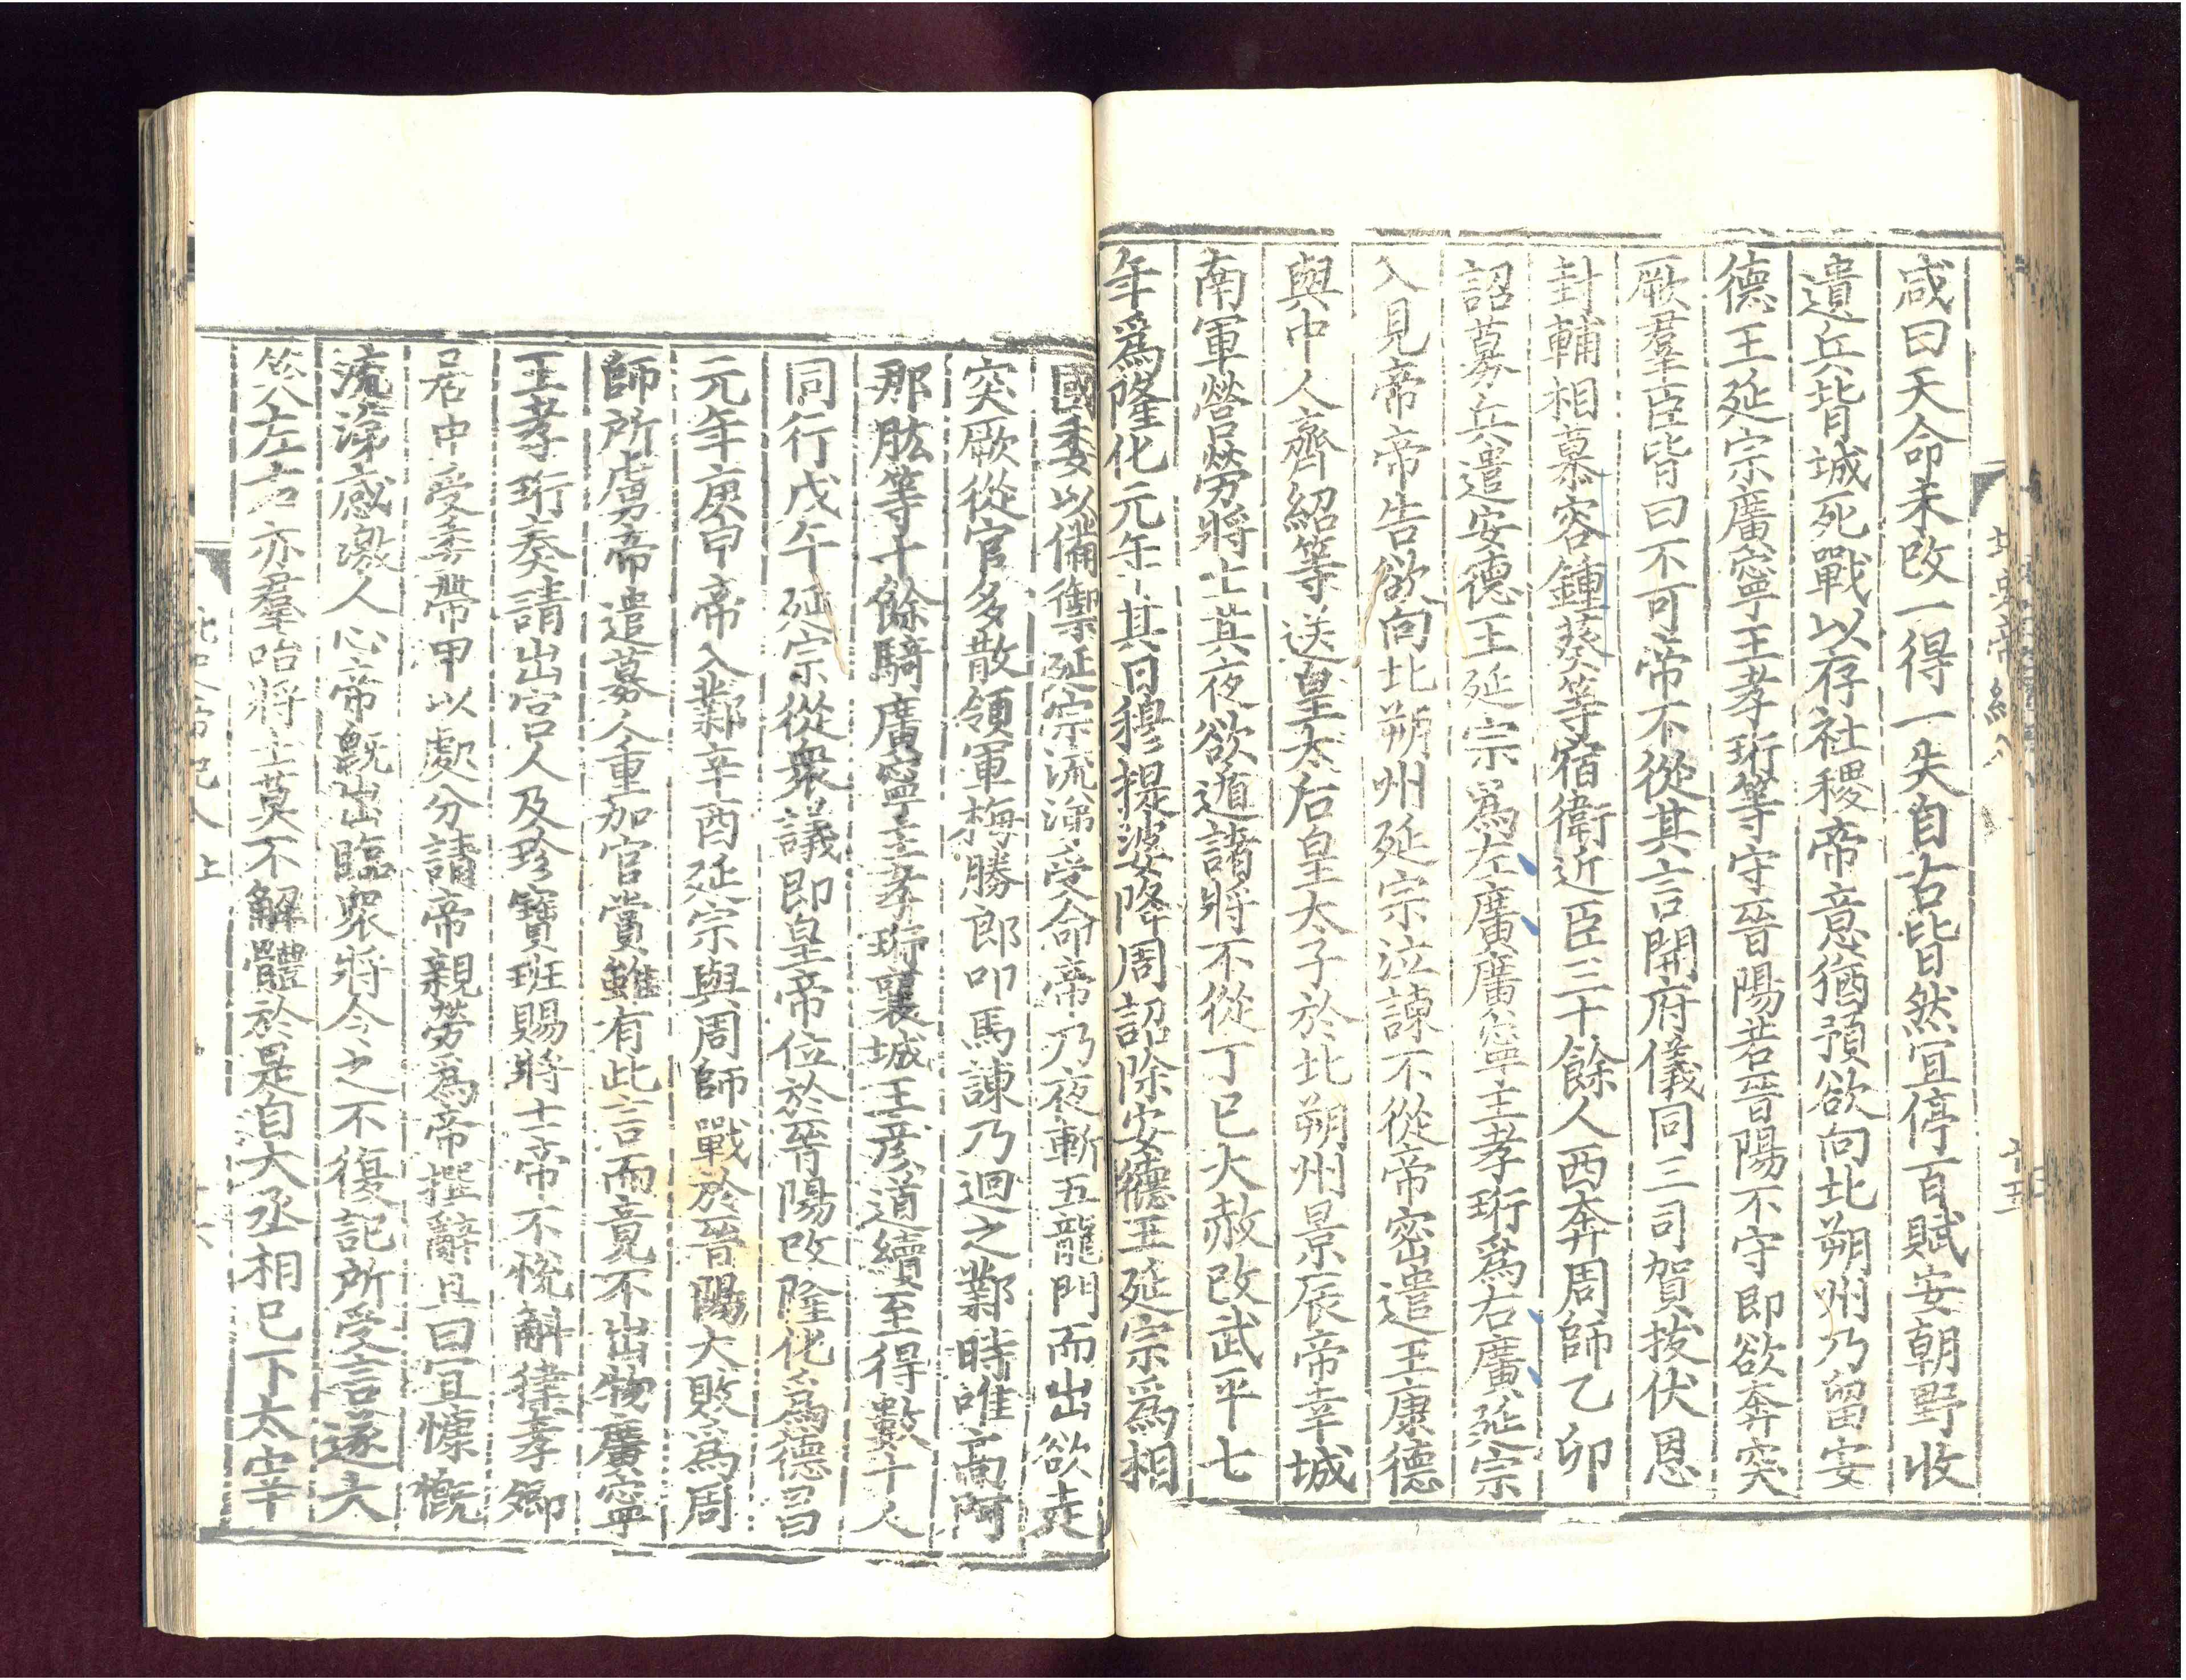 北史帝紀八
十五
咸曰天命未改一得一失自古皆然宜停百賦安朝野收
遺兵背城死戰以存社稷帝意猶預欲向北朔州乃留安
德王延宗廣寧王孝珩等守晉陽若晉陽不守即欲奔突
厥羣臣皆曰不可帝不從其言開府儀同三司賀拔伏恩
封輔相慕容鍾葵等宿衛近臣三十餘人西奔周師乙卯
詔募兵遣安德王延宗爲左廣廣寧王孝珩爲右廣延宗
入見帝帝告欲向北朔州延宗泣諫不從帝密遣王康德
與中人齊紹等送皇太后皇太子於北朔州景辰帝幸城
南軍營勞將士其夜欲遁諸將不從丁巳大赦改武平七
年爲隆化元年其日穆提婆降周詔除安德王延宗爲相
國委以備禦延宗流涕受命帝乃夜斬五龍門而出欲走
突厥從官多散領軍梅勝郎叩馬諫乃迴之鄴時唯高阿
那肱等十餘騎廣寧王孝珩襄城王彦道續至得數十人
同行戊午延宗從衆議即皇帝位於晉陽改隆化爲德昌
元年庚申帝入鄴辛酉延宗與周師戰於晉陽大敗爲周
師所虜帝遣募人重加官賞雖有此言而竟不出物廣寧
王孝珩奏請出宮人及珍寶班賜將士帝不悅斛律孝卿
居中受委帶甲以處分請帝親勞爲帝撰辭且曰宜慷慨
流涕感激人心帝既出臨衆將令之不復記所受言遂大
笑左右亦羣咍將士莫不解體於是自大丞相已下太宰
北史帝紀八 上
十六